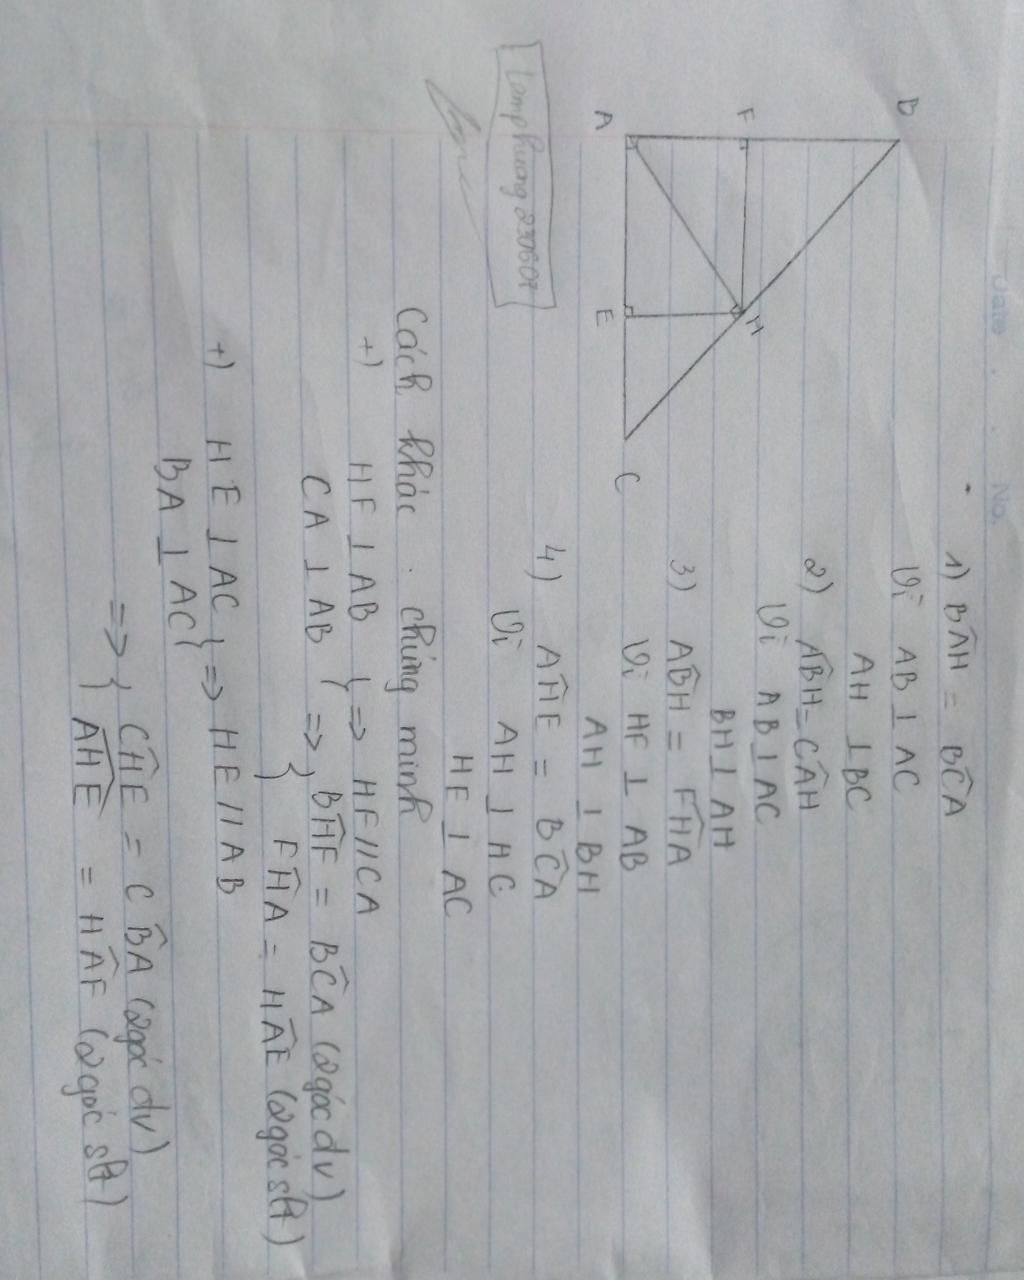 Date
No.
B
F
H
A
E
C
lamphuong230607
1) BÂH = BĈA
Vì AB ⊥ AC
AH ⊥ BC
2) AB̂H = CÂH
Vì AB ⊥ AC
BH ⊥ AH
3) AB̂H = FĤA
Vì HF ⊥ AB
AH ⊥ BH
4) AĤE = BĈA
Vì AH ⊥ HC
HE ⊥ AC
Cách khác: chứng minh
+) HF ⊥ AB } => HF // CA
CA ⊥ AB } => } BĤF = BĈA (2 góc đv)
FĤA = HÂE (2 góc slt)
+) HE ⊥ AC } => HE // AB
BA ⊥ AC }
=> } CĤE = CB̂A (2 góc đv)
AĤE = HÂF (2 góc slt)